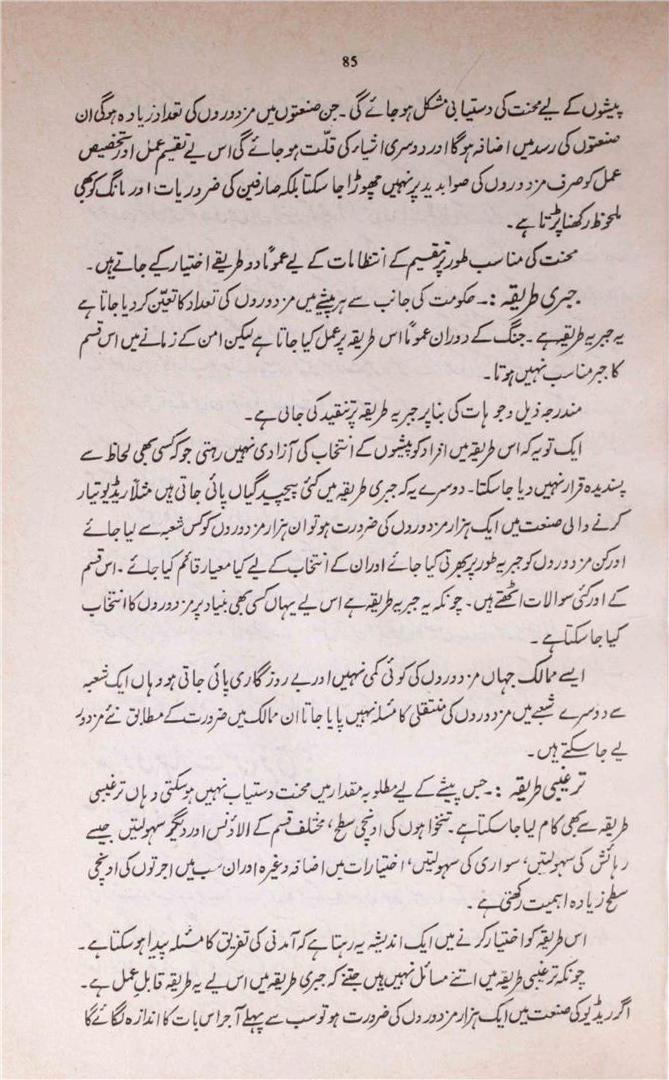 85
پیشوں کے لیے محنت کی دستیابی مشکل ہو جائے گی۔ جن صنعتوں میں مزدوروں کی تعداد زیادہ ہوگی ان
صنعتوں کی رسد میں اضافہ ہوگا اور دوسری اشیاء کی قلّت ہو جائے گی اس لیے تقسیم عمل اور تخصیص
عمل کو صرف مزدوروں کی صوابدید پر نہیں چھوڑا جا سکتا بلکہ صارفین کی ضروریات اور مانگ کو بھی
ملحوظ رکھنا پڑتا ہے۔
محنت کی مناسب طور پر تقسیم کے انتظامات کے لیے عموماً دو طریقے اختیار کیے جاتے ہیں۔
جبری طریقہ :۔ حکومت کی جانب سے ہر پیشے میں مزدوروں کی تعداد کا تعیّن کر دیا جاتا ہے
یہ جبریہ طریقہ ہے۔ جنگ کے دوران عموماً اس طریقہ پر عمل کیا جاتا ہے لیکن امن کے زمانے میں اس قسم
کا جبر مناسب نہیں ہوتا۔
مندرجہ ذیل وجوہات کی بنا پر جبریہ طریقہ پر تنقید کی جاتی ہے۔
ایک تو یہ کہ اس طریقہ میں افراد کو پیشوں کے انتخاب کی آزادی نہیں رہتی جو کہ کسی بھی لحاظ سے
پسندیدہ قرار نہیں دیا جا سکتا۔ دوسرے یہ کہ جبری طریقہ میں کئی پیچیدگیاں پائی جاتی ہیں مثلاً ریڈیو تیار
کرنے والی صنعت میں ایک ہزار مزدوروں کی ضرورت ہو تو ان ہزار مزدوروں کو کس شعبہ سے لیا جائے
اور کن مزدوروں کو جبریہ طور پر بھرتی کیا جائے اور ان کے انتخاب کے لیے کیا معیار قائم کیا جائے۔ اس قسم
کے اور کئی سوالات اٹھتے ہیں۔ چونکہ یہ جبریہ طریقہ ہے اس لیے یہاں کسی بھی بنیاد پر مزدوروں کا انتخاب
کیا جا سکتا ہے۔
ایسے ممالک جہاں مزدوروں کی کوئی کمی نہیں اور بے روزگاری پائی جاتی ہو وہاں ایک شعبہ
سے دوسرے شعبے میں مزدوروں کی منتقلی کا مسئلہ نہیں پایا جاتا ان ممالک میں ضرورت کے مطابق نئے مزدور
لیے جا سکتے ہیں۔
ترغیبی طریقہ :۔ جس پیشے کے لیے مطلوبہ مقدار میں محنت دستیاب نہیں ہو سکتی وہاں ترغیبی
طریقہ سے بھی کام لیا جا سکتا ہے۔ تنخواہوں کی اونچی سطح، مختلف قسم کے الاؤنس اور دیگر سہولتیں جیسے
رہائش کی سہولتیں، سواری کی سہولتیں، اختیارات میں اضافہ وغیرہ اور ان سب میں اجرتوں کی اونچی
سطح زیادہ اہمیت رکھتی ہے۔
اس طریقہ کو اختیار کرنے میں ایک اندیشہ یہ رہتا ہے کہ آمدنی کی تفریق کا مسئلہ پیدا ہو سکتا ہے۔
چونکہ ترغیبی طریقہ میں اتنے مسائل نہیں ہیں جتنے کہ جبری طریقہ میں اس لیے یہ طریقہ قابلِ عمل ہے۔
اگر ریڈیو کی صنعت میں ایک ہزار مزدوروں کی ضرورت ہو تو سب سے پہلے آجر اس بات کا اندازہ لگائے گا